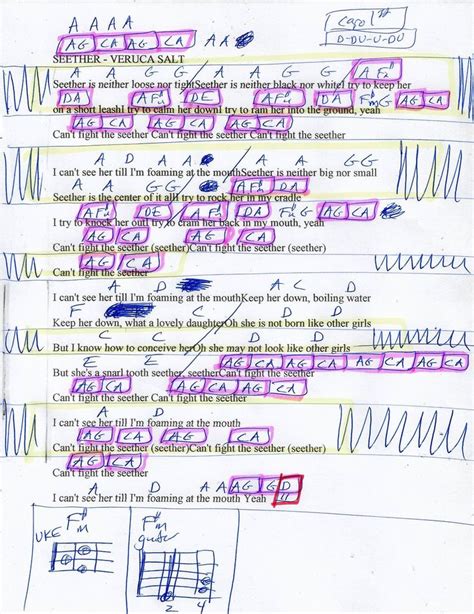 A A A A
Capo 1
AG CA AG CA AA
D-DU-U-DU
SEETHER - VERUCA SALT
A A G G A A G G A F#
Seether is neither loose nor tightSeether is neither black nor whiteI try to keep her
DA AF# DE AF# DA F#m G AG CA
on a short leashI try to calm her downI try to ram her into the ground, yeah
AG CA AG CA AG CA
Can't fight the seether Can't fight the seether Can't fight the seether
A D A A A A G G
I can't see her till I'm foaming at the mouthSeether is neither big nor small
A A G G AF# DA
Seether is the center of it allI try to rock her in my cradle
AF# DE AF# DA F#G AG CA
I try to knock her outI try to cram her back in my mouth, yeah
AG CA AG CA
Can't fight the seether (seether)Can't fight the seether (seether)
AG CA
Can't fight the seether
A D A C D
I can't see her till I'm foaming at the mouthKeep her down, boiling water
F C D
Keep her down, what a lovely daughterOh she is not born like other girls
C C D D
But I know how to conceive herOh she may not look like other girls
E E AG CA AG CA AG CA AG CA
But she's a snarl tooth seether, seetherCan't fight the seether
AG CA AG CA AG CA
Can't fight the seether Can't fight the seether
A D
I can't see her till I'm foaming at the mouth
AG CA AG CA
Can't fight the seether (seether)Can't fight the seether (seether)
AG CA
Can't fight the seether
A D A A AG G D
I can't see her till I'm foaming at the mouth Yeah
UKE F#m
F#m guitar
2 4